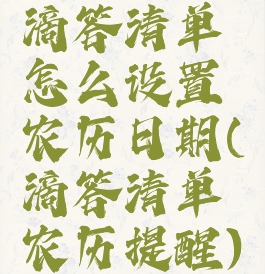 滴答清单
怎么设置
农历日期(
滴答清单
农历提醒)